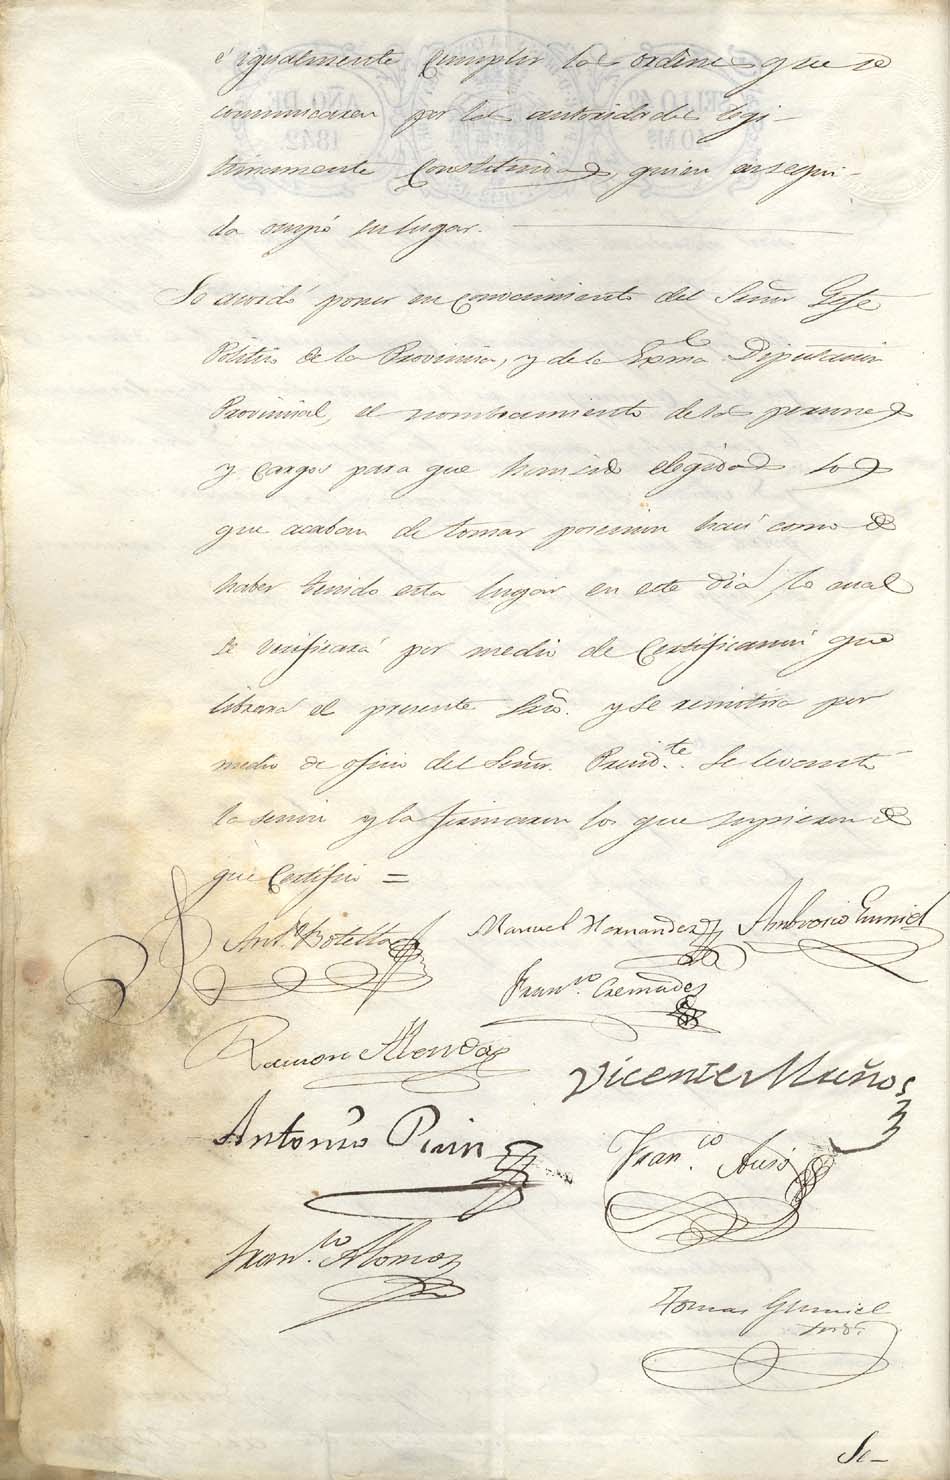 é igualmente cumplir las ordenes que se
comunicaren por las autoridades legi-
timamente Constituidas, quien enseguí-
da ocupó su lugar.
Se acordó poner en conocimiento del Señor Gefe
Politico de la Provincia, y de la Exma Diputacion
Provincial, el nombramiento de las personas
y cargos para que han sido elegidos los
que acaban de tomar posesion hasi como de
haber tenido esta lugar en este dia, lo cual
se verificará por medio de Certificacion que
librará el presente Srio. y se remitira por
medio de oficio del Señor Presid.te Se levantó
la sesion y la firmaron los que supieron de
que Certifico =
Ant.º Botella
Manuel Hernandez
Ambrosio Gumiel
Fran.co Cremades
Ramon Alenda
Vicente Muños
Antonio
Fran.co Ausó
Fran.co Alomos
Tomas Gumiel
Se-
SELLO 4º
AÑO DE
1842.